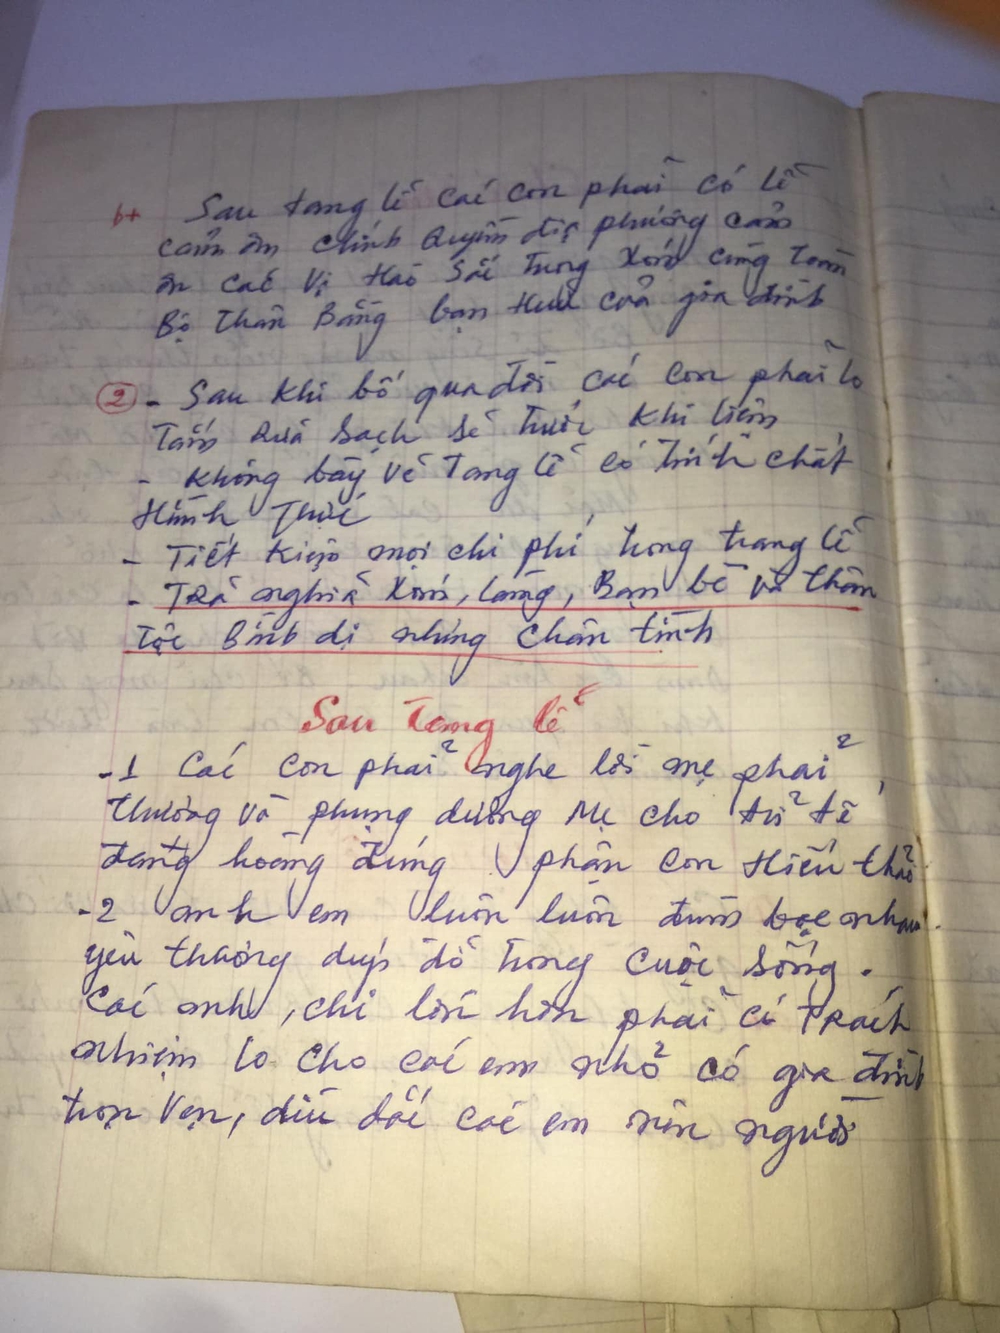 b+ Sau tang lễ các con phải có lễ
cảm ơn chính quyền địa phương cảm
ơn các vị Hào Sắc trong xóm cùng toàn
Bộ thân Bằng bạn Hữu của gia đình
2 - Sau khi bố qua đời các con phải lo
Tắm Rửa sạch sẽ trước khi liệm
- không bày vẽ Tang lễ có tính chất
Hình Thức
- Tiết kiệm mọi chi phí trong trang lễ
- Trả nghĩa xóm, làng, Bạn bè và thân
Tộc Bình dị nhưng chân tình
Sau Tang lễ
-1 Các con phải nghe lời mẹ phải
thương và phụng dưỡng Mẹ cho tử tế
đàng hoàng đúng phận con Hiếu thảo
-2 anh em luôn luôn đùm bọc nhau.
yêu thương dúp đỡ trong cuộc sống.
Các anh, chị lớn hơn phải có Trách
nhiệm lo cho các em nhỏ có gia đình
trọn vẹn, dìu dắt các em nên người